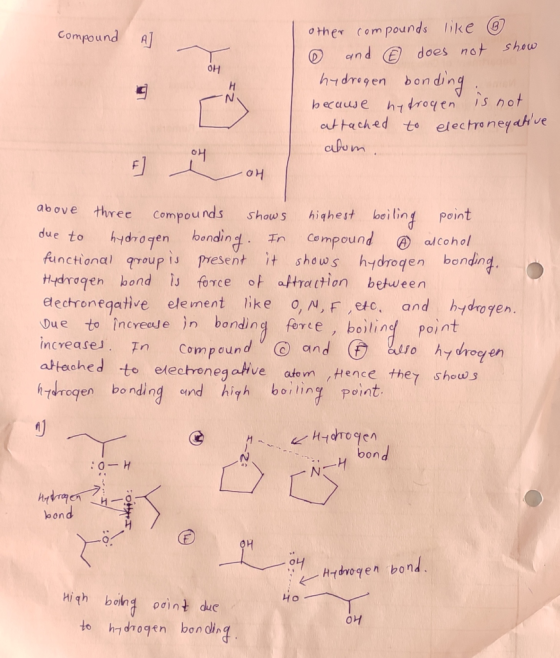 compound A]
OH
H
N
F]
OH
OH
other compounds like Ⓑ
Ⓓ and Ⓔ does not show
hydrogen bonding.
because hydrogen is not
attached to electronegative
atom.
above three compounds shows highest boiling point
due to hydrogen bonding. In compound Ⓐ alcohol
functional group is present it shows hydrogen bonding.
Hydrogen bond is force of attraction between
electronegative element like O, N, F, etc. and hydrogen.
Due to increase in bonding force, boiling point
increases. In compound Ⓒ and Ⓕ also hydrogen
attached to electronegative atom, Hence they shows
hydrogen bonding and high boiling point.
A]
:O-H
Hydrogen
bond
H-O
H
:O:
High boling point due
to hydrogen bonding.
H
N
N-H
Hydrogen
bond
Ⓕ
OH
:OH
Hydrogen bond.
HO
OH